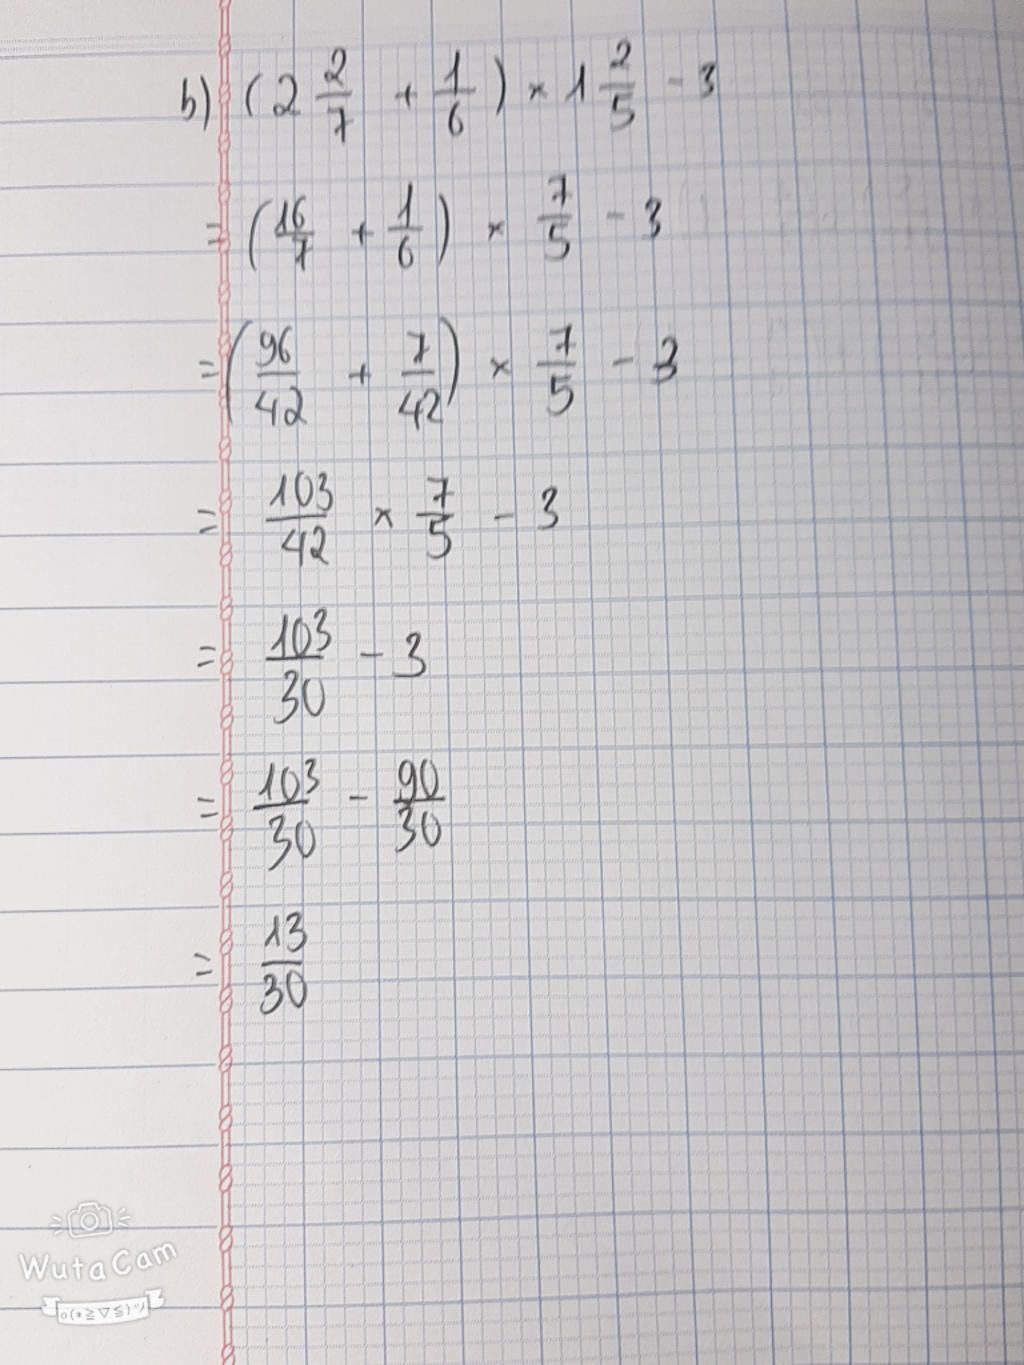 b) (2 2/7 + 1/6) × 1 2/5 - 3
= (16/7 + 1/6) × 7/5 - 3
= (96/42 + 7/42) × 7/5 - 3
= 103/42 × 7/5 - 3
= 103/30 - 3
= 103/30 - 90/30
= 13/30
WutaCam
o(*≧▽≦)ツ